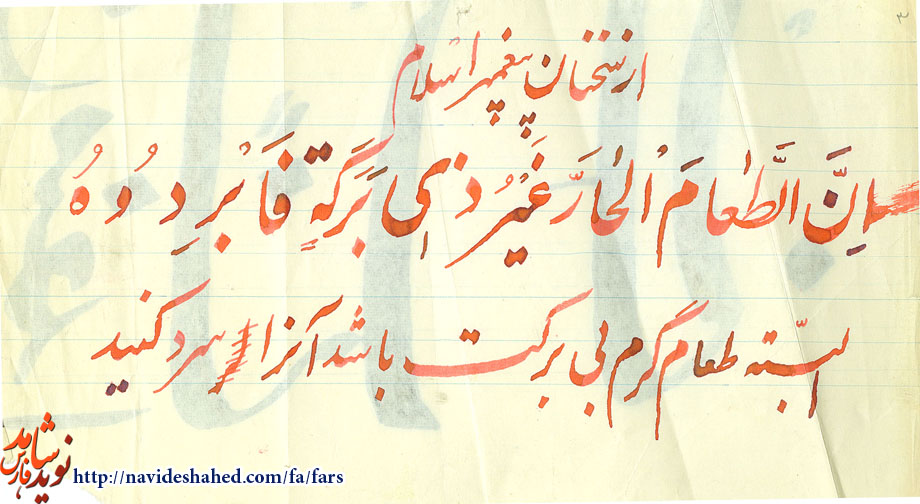 از سخنان پیغمبر اسلام
اِنَّ الطَّعامَ الْحارَّ غَیْرُ ذی بَرَکَةٍ فَاَبْرِدُوُهُ
البتّه طعام گرم بی برکت باشد آنرا سرد کنید
نوید شاهد
فارس
http://navideshahed.com/fa/fars